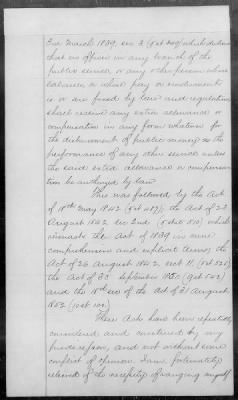 3rd March 1839, sec 3 (5 st 349) which declares
that no officer in any branch of the
public service or any other person whose
salaries or whose pay or emoluments
is or are fixed by law and regulations,
shall receive any extra allowance or
compensation in any form whatever for
the disbursement of public money or the
performance of any other service unless
the said extra allowance or compensa-
tion be authorized by law.
This was followed by the Act
of 18th May 1842 the Act of 23
August 1842 sec 2nd (5 st 510) which
reenacts the Act of 1839 in more
comprehensive and explicit terms, the
Act of 26 August 1842, sect 11. (5 st 525)
the Act of 30 September 1850 (9 st 542)
and the 18th sec of the Act of 31 August
1852 (10 st 100)
These Acts have been repeatedly
considered and construed by my
predecessors, and not without some
conflict of opinion. I am fortunately
relieved of the necessity of ranging myself